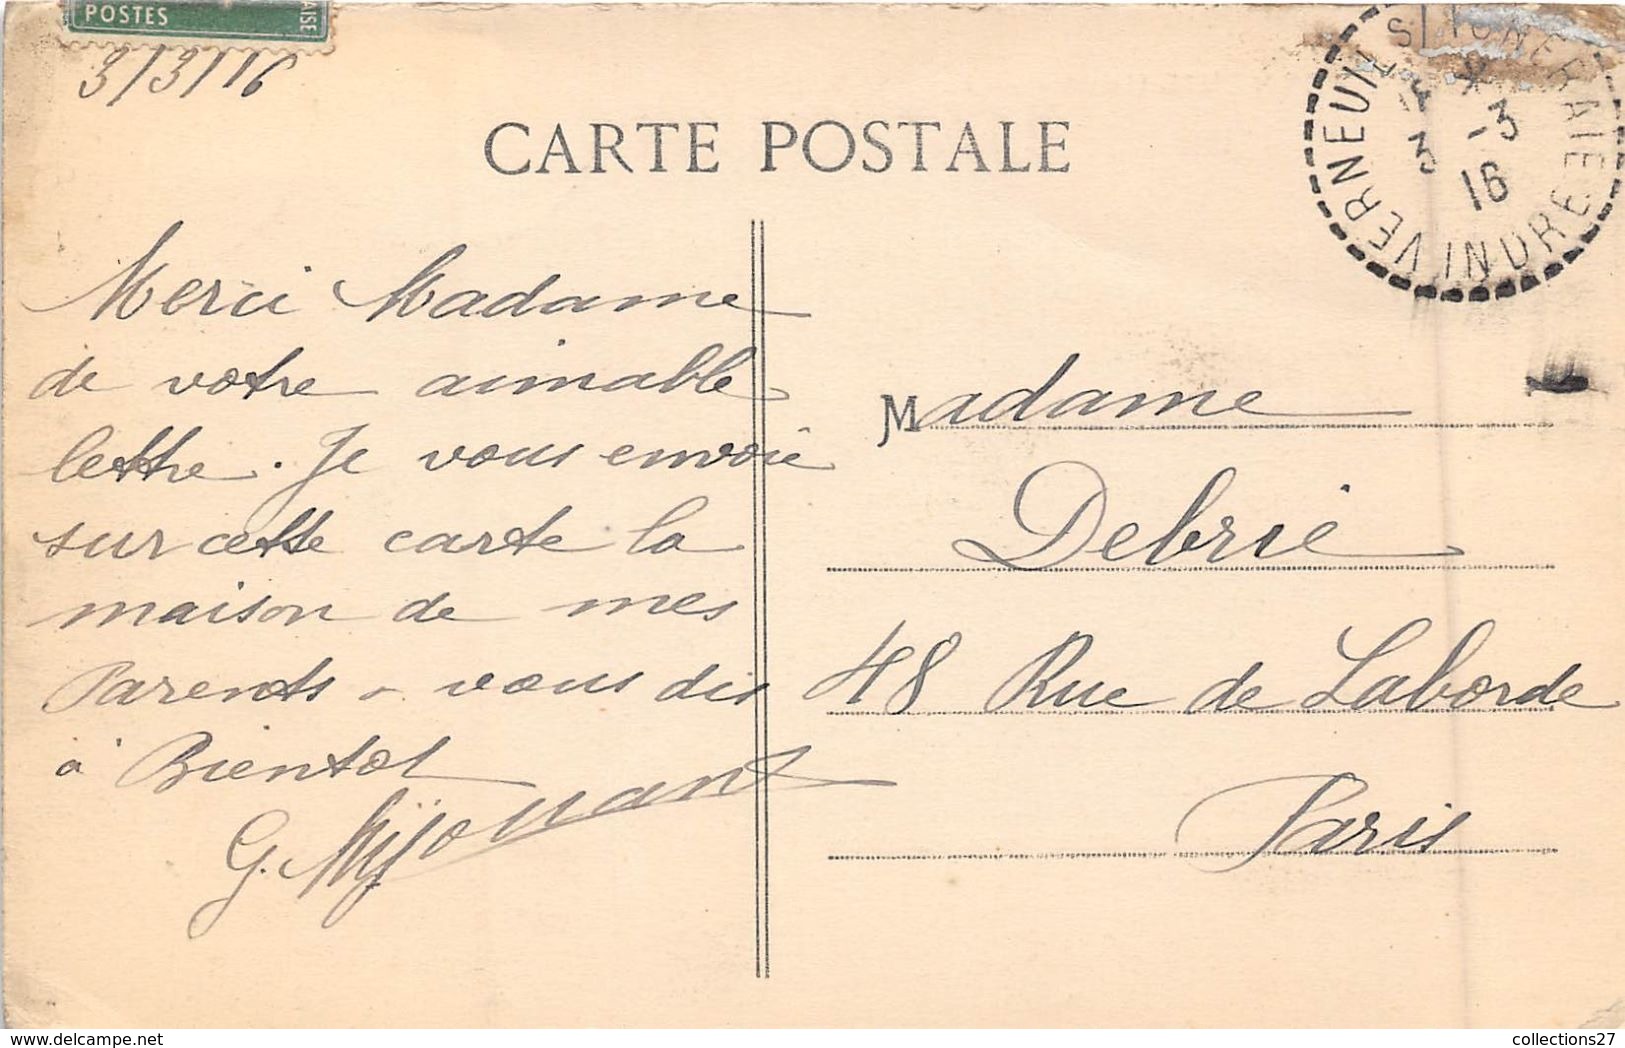 POSTES
AISE
3/3/16
CARTE POSTALE
VERNEUIL S/ IGNERAIE
3 -3
16
INDRE
Merci Madame
de votre aimable
lettre. Je vous envoie
sur cette carte la
maison de mes
Parents - vous dis
à Bientot
G.
Madame
Debrie
48 Rue de Laborde
Paris
collections27